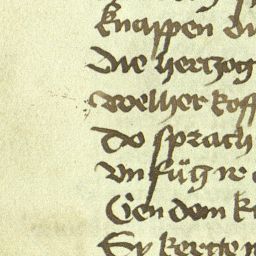 knappen di
Die hertzog
Welher koff
Do sprach
Vn fuͤg ir
Gen dem k
Sy kerte